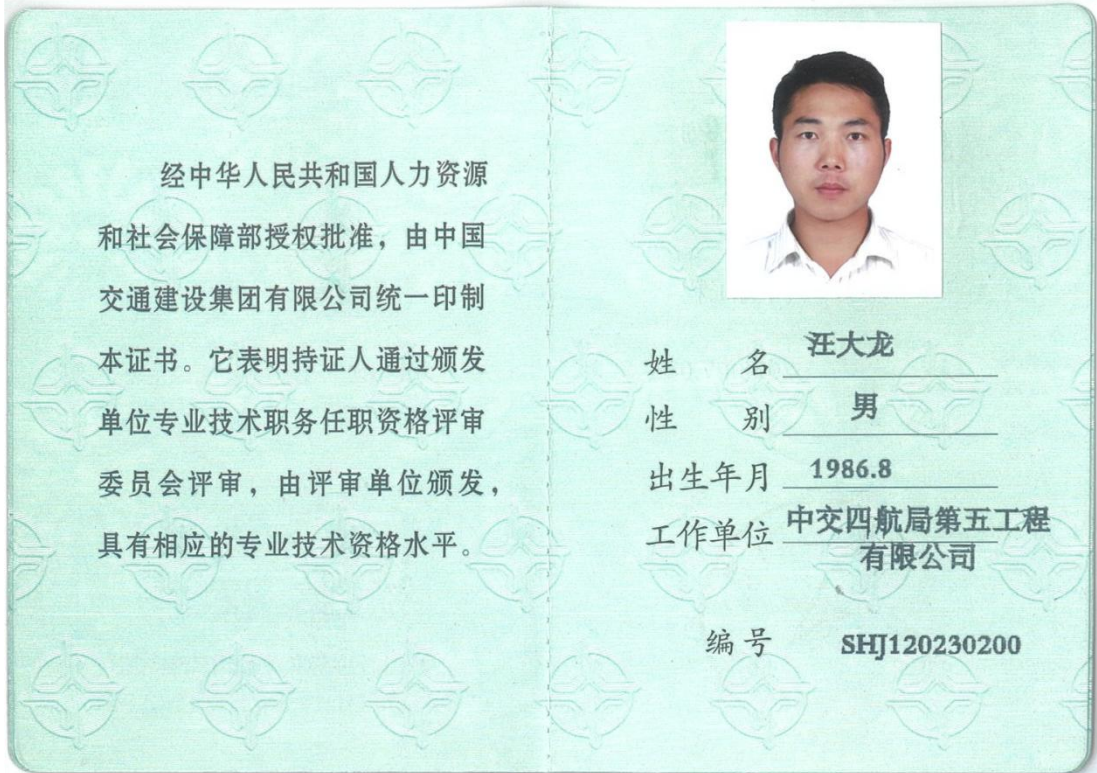 经中华人民共和国人力资源
和社会保障部授权批准，由中国
交通建设集团有限公司统一印制
本证书。它表明持证人通过颁发
单位专业技术职务任职资格评审
委员会评审，由评审单位颁发，
具有相应的专业技术资格水平。
姓 名 汪大龙
性 别 男
出生年月 1986.8
工作单位 中交四航局第五工程
有限公司
编号 SHJ120230200